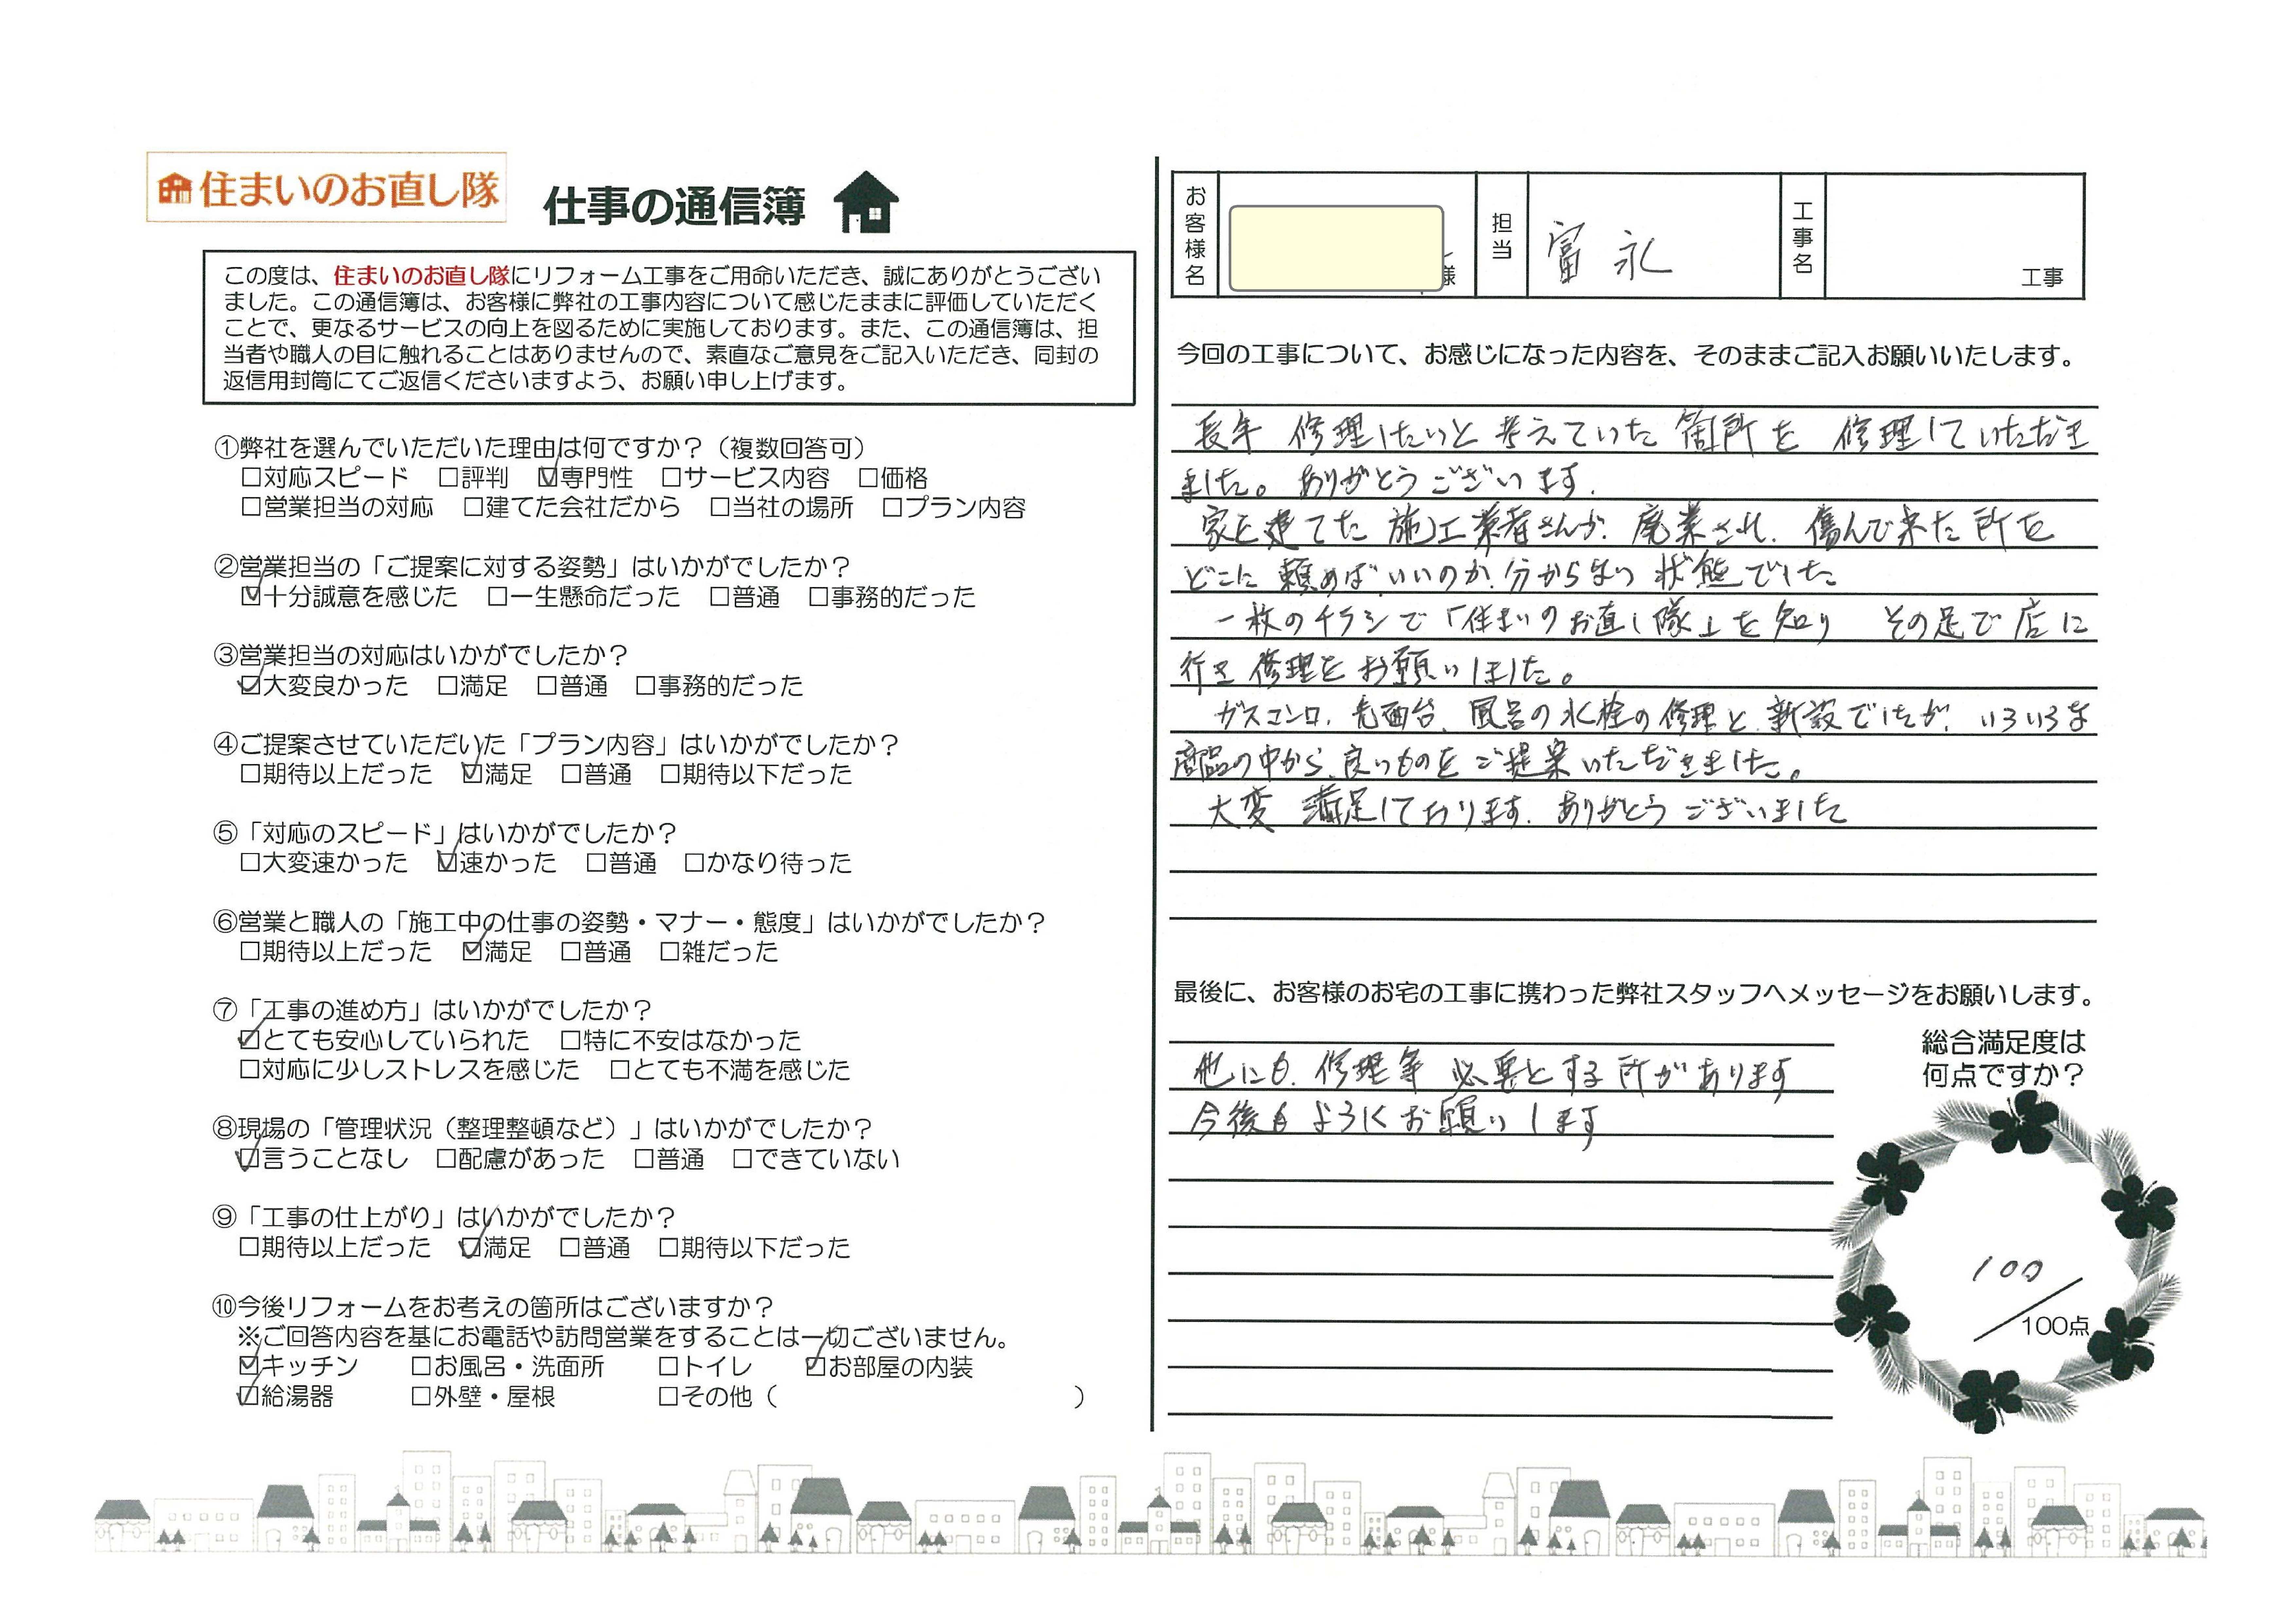 住まいのお直し隊
仕事の通信簿
この度は、住まいのお直し隊にリフォーム工事をご用命いただき、誠にありがとうござい
ました。この通信簿は、お客様に弊社の工事内容について感じたままに評価していただく
ことで、更なるサービスの向上を図るために実施しております。また、この通信簿は、担
当者や職人の目に触れることはありませんので、素直なご意見をご記入いただき、同封の
返信用封筒にてご返信くださいますよう、お願い申し上げます。
①弊社を選んでいただいた理由は何ですか？（複数回答可）
□対応スピード □評判 ☑専門性 □サービス内容 □価格
□営業担当の対応 □建てた会社だから □当社の場所 □プラン内容
②営業担当の「ご提案に対する姿勢」はいかがでしたか？
☑十分誠意を感じた □一生懸命だった □普通 □事務的だった
③営業担当の対応はいかがでしたか？
☑大変良かった □満足 □普通 □事務的だった
④ご提案させていただいた「プラン内容」はいかがでしたか？
□期待以上だった ☑満足 □普通 □期待以下だった
⑤「対応のスピード」はいかがでしたか？
□大変速かった ☑速かった □普通 □かなり待った
⑥営業と職人の「施工中の仕事の姿勢・マナー・態度」はいかがでしたか？
□期待以上だった ☑満足 □普通 □雑だった
⑦「工事の進め方」はいかがでしたか？
☑とても安心していられた □特に不安はなかった
□対応に少しストレスを感じた □とても不満を感じた
⑧現場の「管理状況（整理整頓など）」はいかがでしたか？
☑言うことなし □配慮があった □普通 □できていない
⑨「工事の仕上がり」はいかがでしたか？
□期待以上だった ☑満足 □普通 □期待以下だった
⑩今後リフォームをお考えの箇所はございますか？
※ご回答内容を基にお電話や訪問営業をすることは一切ございません。
☑キッチン □お風呂・洗面所 □トイレ ☑お部屋の内装
☑給湯器 □外壁・屋根 □その他（ ）
お客様名 様 担当 富永 工事名 工事
今回の工事について、お感じになった内容を、そのままご記入お願いいたします。
長年 修理したいと考えていた箇所を 修理していただき
ました。ありがとうございます.
家を建てた 施工業者さんが、廃業され、傷んで来た所を
どこに頼めばいいのか、分からない 状態でした
一枚のチラシで「住まいのお直し隊」を知り その足で店に
行き 修理をお願いしました。
ガスコンロ、洗面台、風呂の水栓の修理と新設でしたが、いろいろな
商品の中から、良いものをご提案いただきました。
大変 満足しております. ありがとうございました
最後に、お客様のお宅の工事に携わった弊社スタッフへメッセージをお願いします。
他にも、修理等 必要とする所があります
今後もよろしくお願いします
総合満足度は
何点ですか？
100
100点